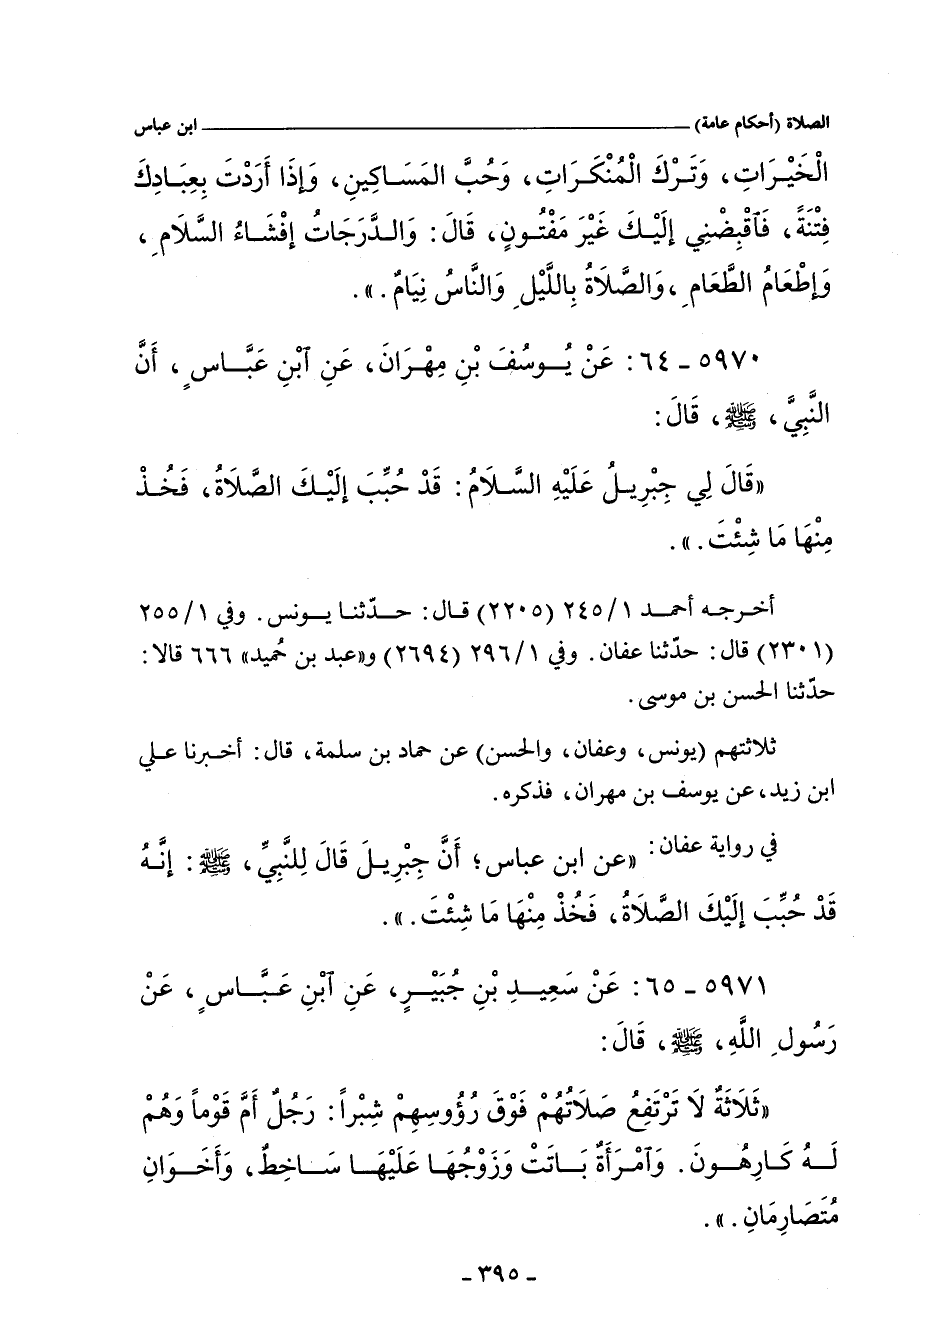 الصلاة (أحكام عامة) ابن عباس
الْخَيْرَاتِ، وَتَرْكَ الْمُنْكَرَاتِ، وَحُبَّ المَسَاكِينِ، وَإِذَا أَرَدْتَ بِعِبَادِكَ
فِتْنَةً، فَاقْبِضْنِي إِلَيْكَ غَيْرَ مَفْتُونٍ، قَالَ: وَالدَّرَجَاتُ إِفْشَاءُ السَّلَامِ،
وَإِطْعَامُ الطَّعَامِ، وَالصَّلَاةُ بِاللَّيْلِ وَالنَّاسُ نِيَامٌ.».
٥٩٧٠ - ٦٤: عَنْ يُوسُفَ بْنِ مِهْرَانَ، عَنِ ابْنِ عَبَّاسٍ، أَنَّ
النَّبِيَّ، ﷺ، قَالَ:
«قَالَ لِي جِبْرِيلُ عَلَيْهِ السَّلَامُ: قَدْ حُبِّبَ إِلَيْكَ الصَّلَاةُ، فَخُذْ
مِنْهَا مَا شِئْتَ.».
أخرجه أحمد ٢٤٥/١ (٢٢٠٥) قال: حدّثنا يونس. وفي ٢٥٥/١
(٢٣٠١) قال: حدّثنا عفان. وفي ٢٩٦/١ (٢٦٩٤) و«عبد بن حُميد» ٦٦٦ قالا:
حدّثنا الحسن بن موسى.
ثلاثتهم (يونس، وعفان، والحسن) عن حماد بن سلمة، قال: أخبرنا علي
ابن زيد، عن يوسف بن مهران، فذكره.
في رواية عفان: «عن ابن عباس؛ أَنَّ جِبْرِيلَ قَالَ لِلنَّبِيِّ، ﷺ: إِنَّهُ
قَدْ حُبِّبَ إِلَيْكَ الصَّلَاةُ، فَخُذْ مِنْهَا مَا شِئْتَ.».
٥٩٧١ - ٦٥: عَنْ سَعِيدِ بْنِ جُبَيْرٍ، عَنِ ابْنِ عَبَّاسٍ، عَنْ
رَسُولِ اللَّهِ، ﷺ، قَالَ:
«ثَلَاثَةٌ لَا تَرْتَفِعُ صَلَاتُهُمْ فَوْقَ رُؤُوسِهِمْ شِبْراً: رَجُلٌ أَمَّ قَوْماً وَهُمْ
لَهُ كَارِهُونَ. وَامْرَأَةٌ بَاتَتْ وَزَوْجُهَا عَلَيْهَا سَاخِطٌ، وَأَخَوَانِ
مُتَصَارِمَانِ.».
- ٣٩٥ -